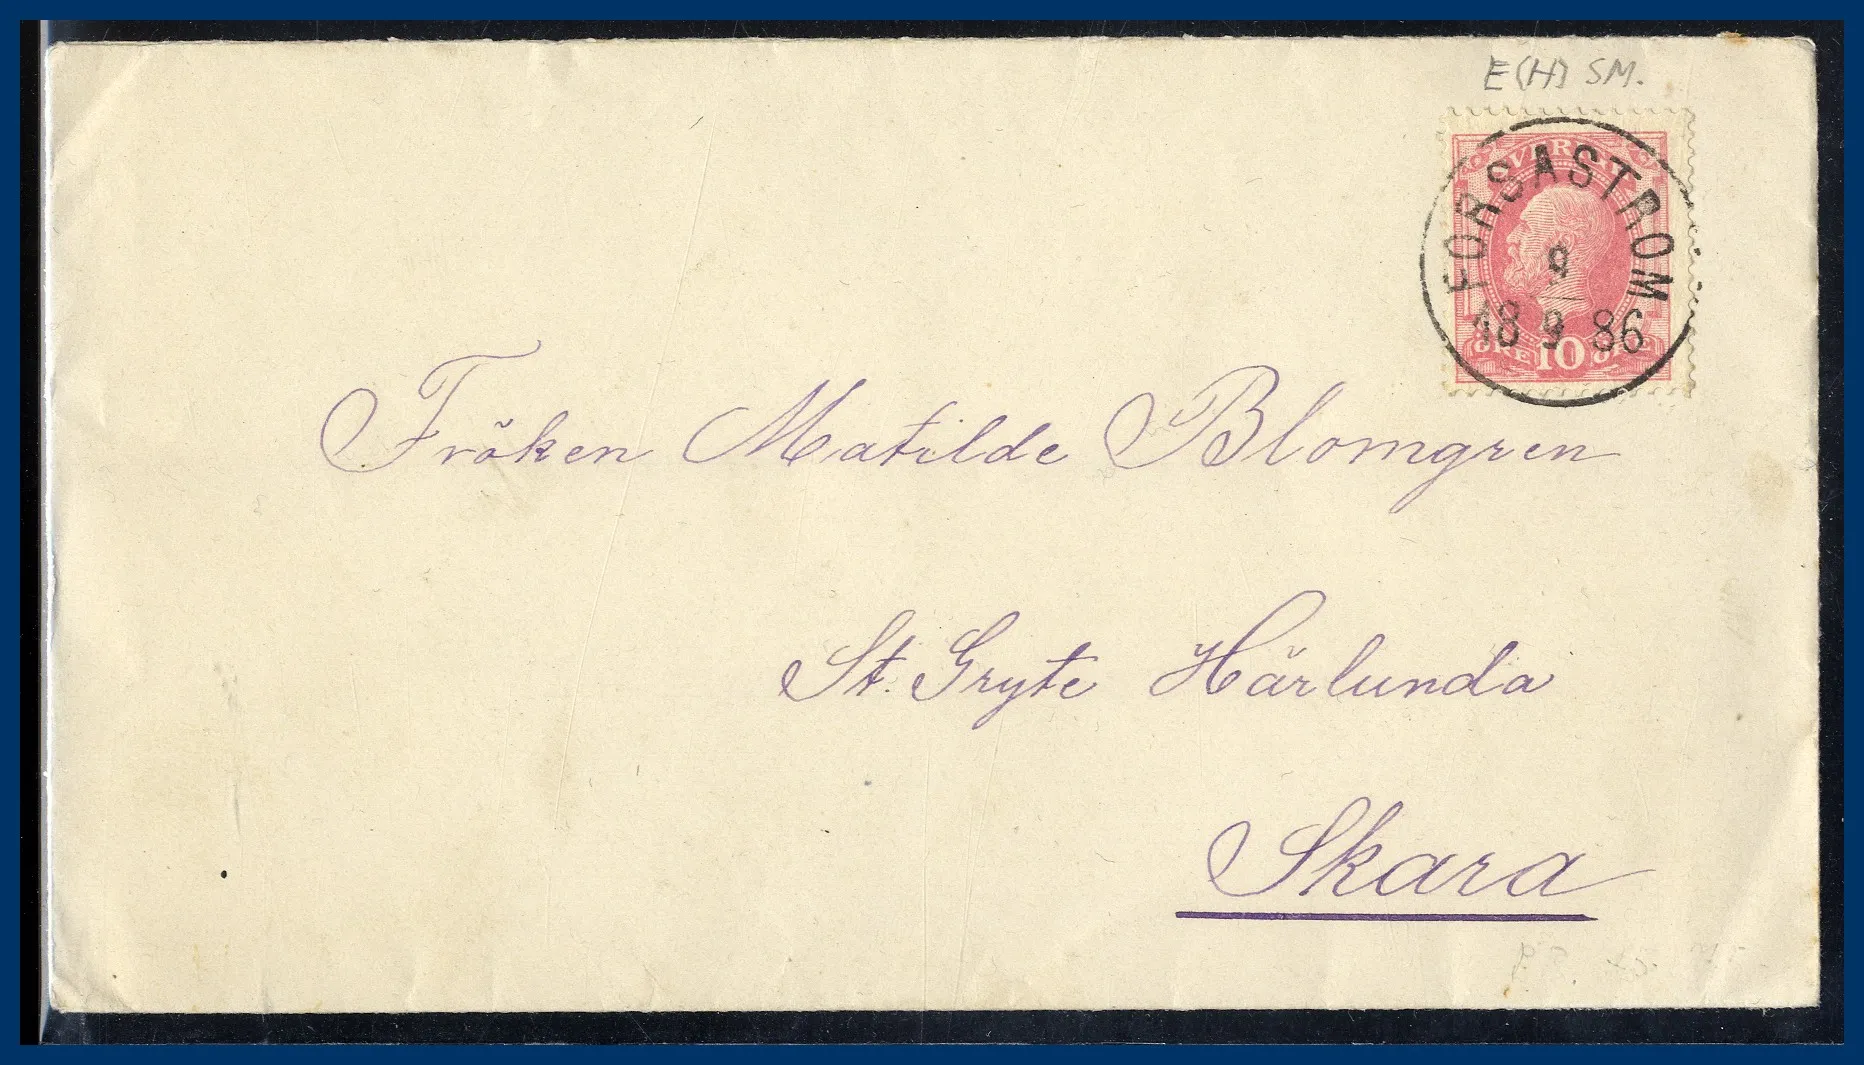 E(H) SM.
SVERIGE
FORSASTROM
9
18 9 86
ÖRE 10 ÖRE
Fröken Matilde Blomgren
St. Gryte Härlunda
Skara